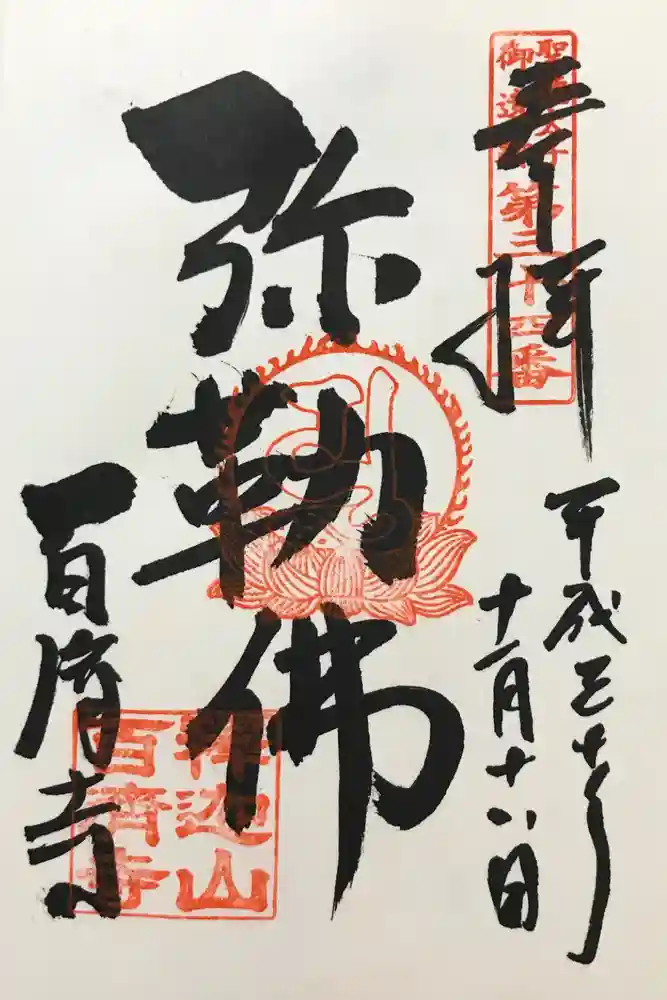 奉拝
聖徳太子
御遺跡
第三十四番
平成三十年
十一月十八日
弥勒佛
百済寺
釋迦山
百濟寺